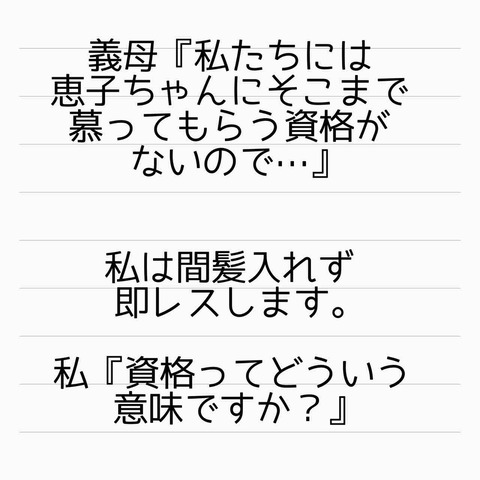 義母『私たちには
恵子ちゃんにそこまで
慕ってもらう資格が
ないので…』
私は間髪入れず
即レスします。
私『資格ってどういう
意味ですか？』